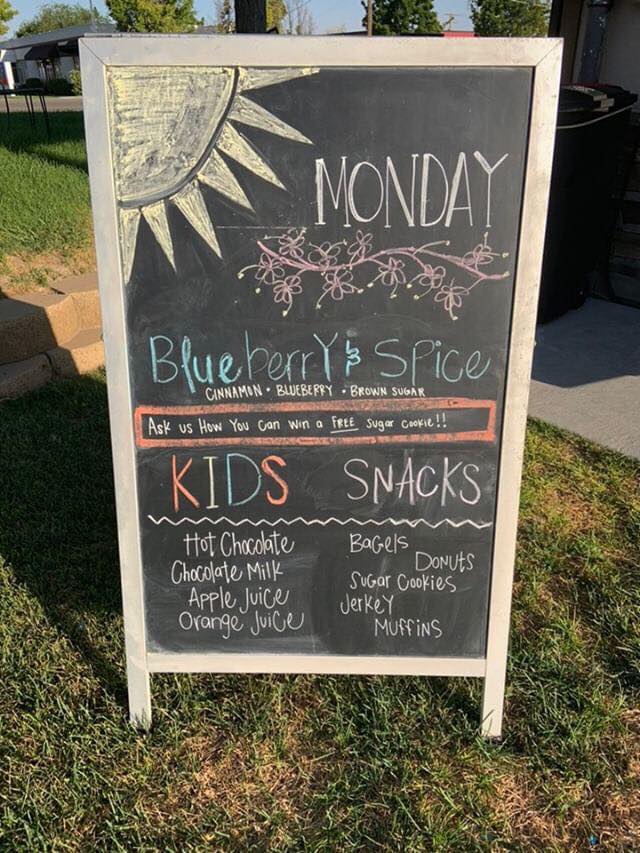 MONDAY
BlueberrY & SPice
CINNAMON • BLUEBERRY • BROWN SUGAR
Ask us How You Can win a FREE Sugar Cookie!!
KIDS
Hot Chocolate
Chocolate Milk
Apple Juice
Orange Juice
SNACKS
BaGels
DONUtS
SuGar Cookies
JerkeY
MUffiNS